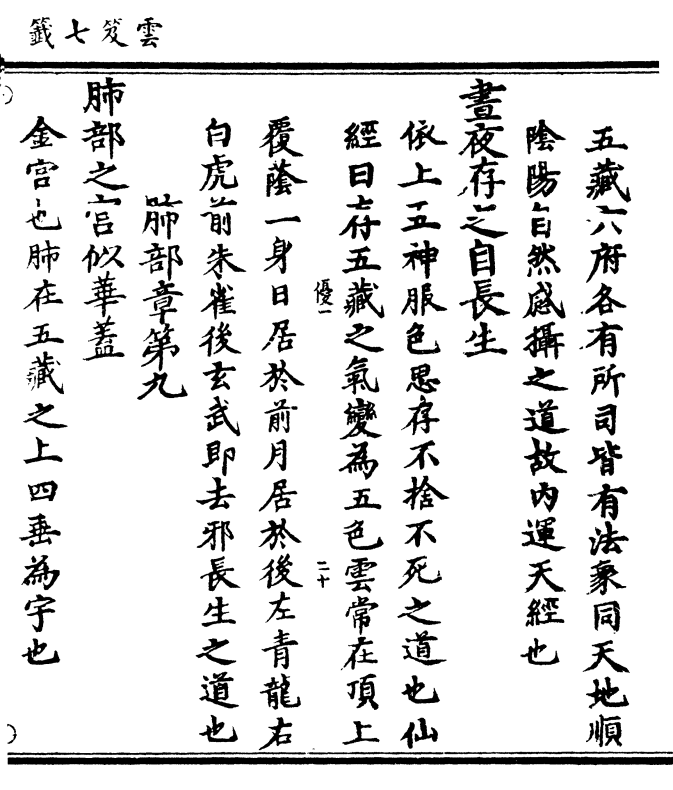 雲笈七籤
五藏六府各有所司皆有法象同天地順
陰陽自然感攝之道故內運天經也
晝夜存之自長生
依上五神服色思存不捨不死之道也仙
經曰存五藏之氣變為五色雲常在頂上
優一
二十
覆蔭一身日居於前月居於後左青龍右
白虎前朱雀後玄武即去邪長生之道也
肺部章第九
肺部之宮似華蓋
金宮也肺在五藏之上四垂為宇也